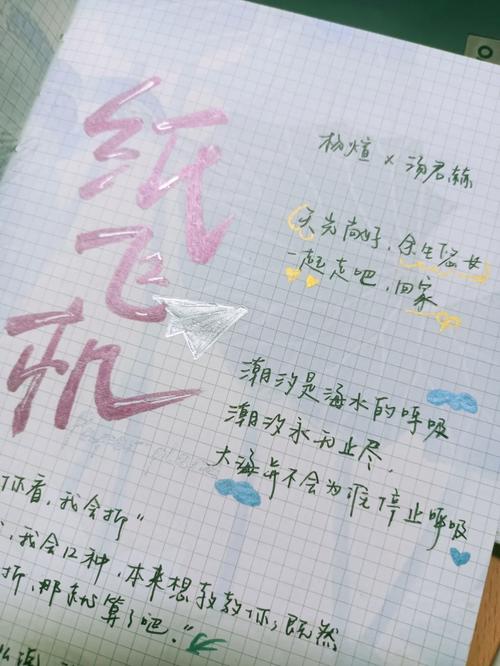 纸飞机
杨煊 × 汤君赫
天光尚好，余生还长
一起走吧，回家
潮汐是海水的呼吸
潮汐永无止尽，
大海并不会为谁停止呼吸
你看，我会折”
，我会12种，本来想教教你，既然
折，那就算了吧。”